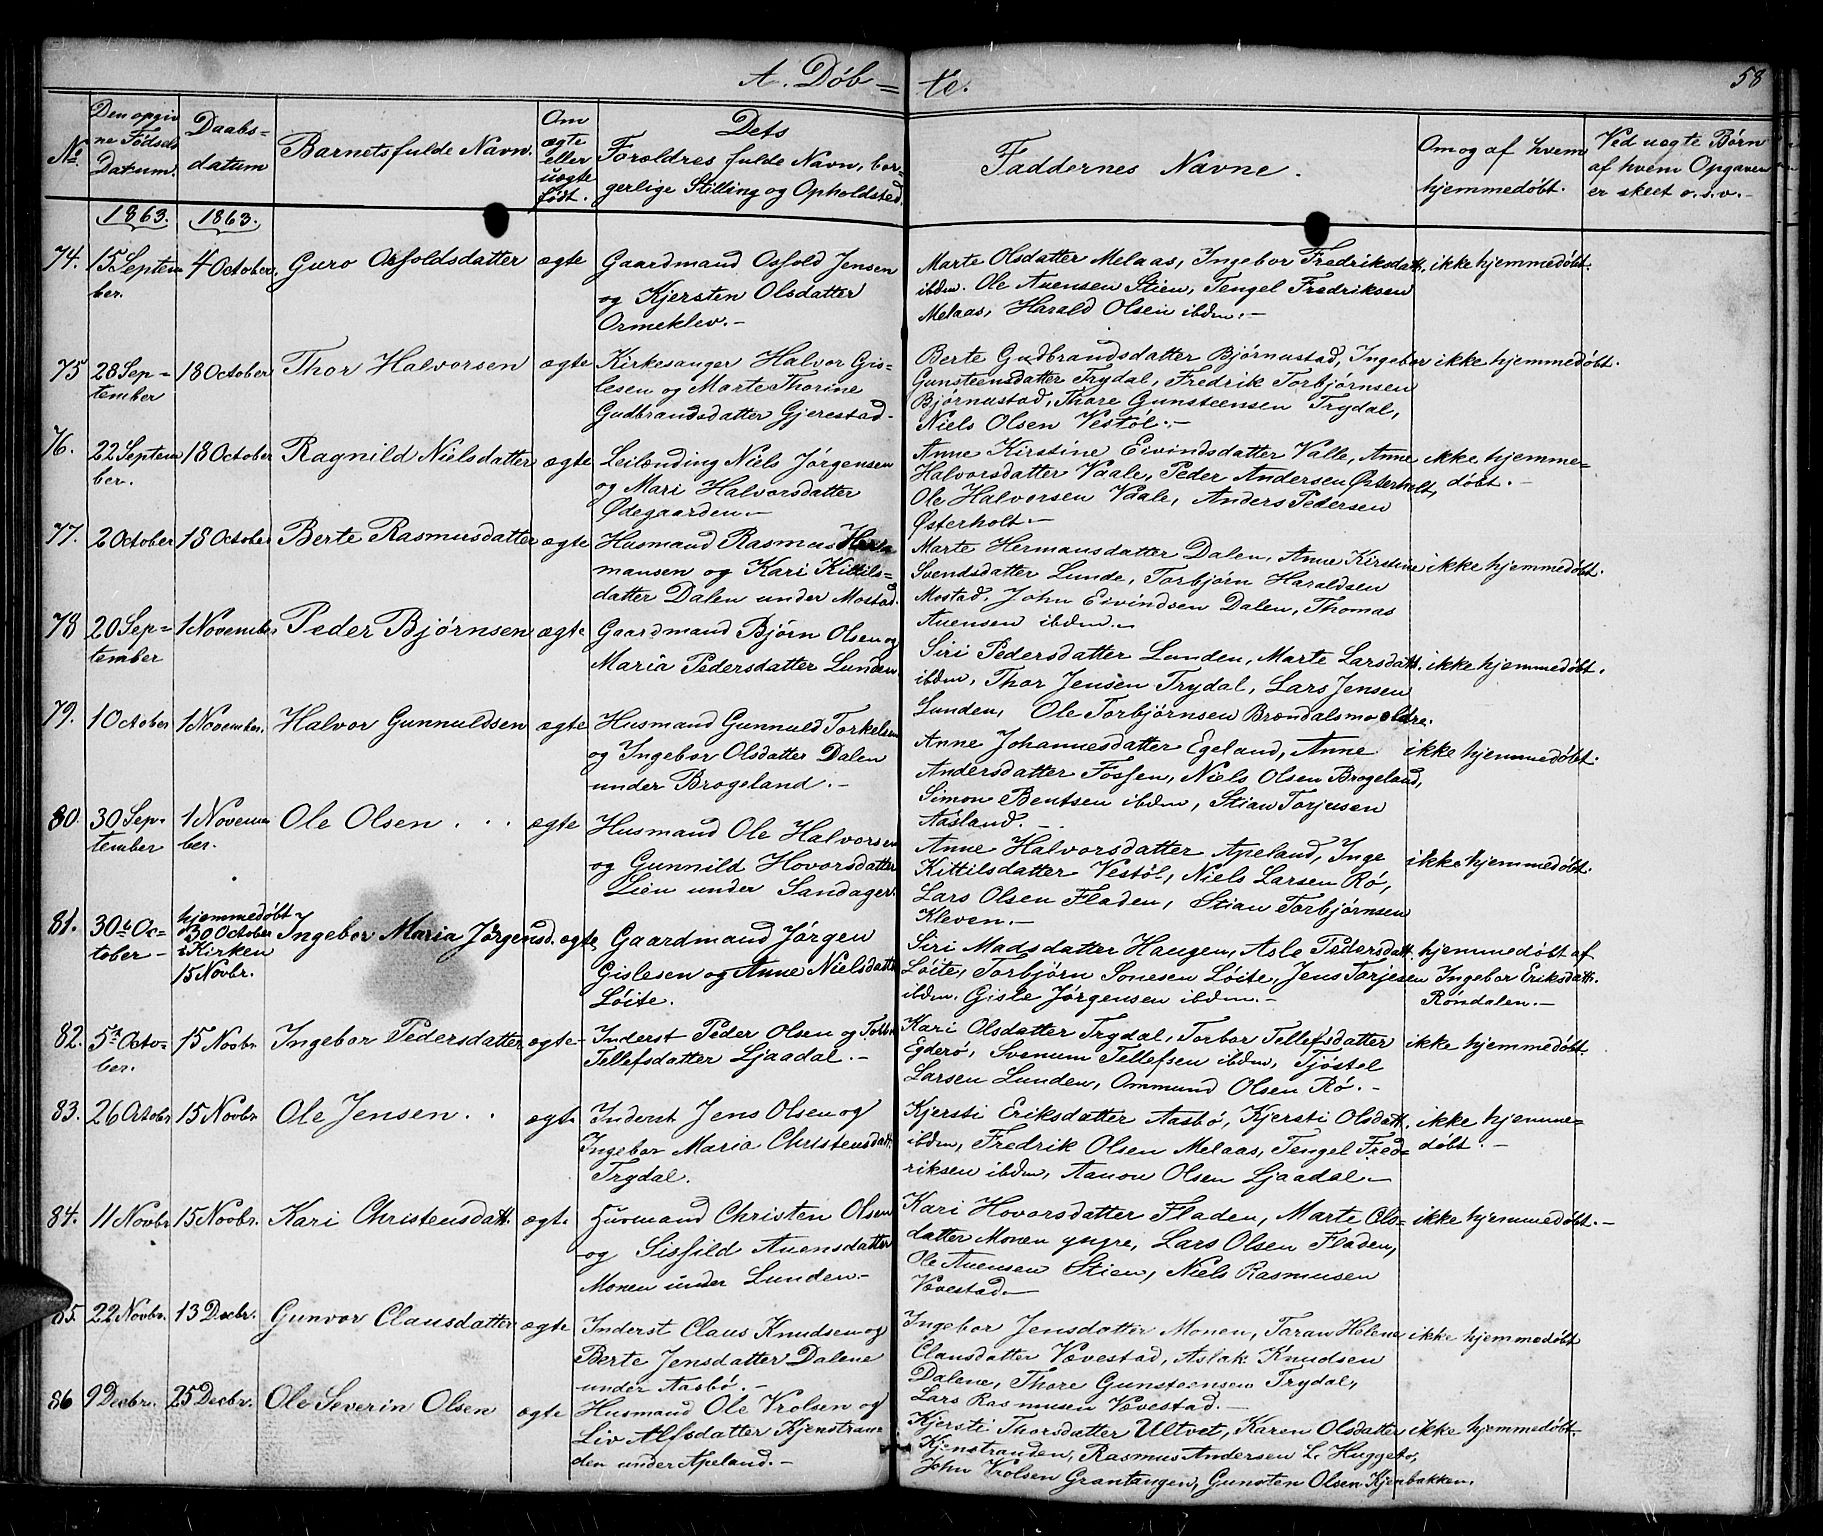 A. Døb=te.
58
No.
Den opgiv
ne Fødsels
Datum.
Daabs=
datum
Barnets fulde Navn.
Om
ægte
eller
uægte
født.
Dets
Forældres fulde Navn, bor=
gerlige Stilling og Opholdsted.
Faddernes Navne.
Om og af hvem
hjemmedøbt.
Ved uægte Børn
af hvem Opgaven
er skeet o.s.v.-
1863. 1863.
74. 15 Septem
ber. 4 October. Guro Osfoldsdatter ægte
Gaardmand Osfold Jensen
og Kjersten Olsdatter
Ormeklev.-
Marte Olsdatter Melaas, Ingebor Fredriksdatt.
ibdm. Ole Auensen Stien, Tengel Fredriksen
Melaas, Harald Olsen ibdm.-
ikke hjemmedøbt.
75 28 Sep=
tember 18 October Thor Halvorsen ægte
Kirkesanger Halvor Gis=
lesen og Marte Thorine
Gudbrandsdatter Gjerestad.
Berte Gudbrandsdatter Bjørnustad, Ingebor
Gunsteensdatter Trydal, Fredrik Torbjørnsen
Bjørnustad, Thore Gunsteensen Trydal,
Niels Olsen Vestøl.-
ikke hjemmedøbt.
76. 22 Septem
ber. 18 October Ragnild Nielsdatter ægte
Leilænding Niels Jørgensen
og Mari Halvorsdatter
Ødegaarden.-
Anne Kirstine Eivindsdatter Valle, Anne
Halvorsdatter Vaale, Peder Andersen Østerholt,
Ole Halvorsen Vaale, Anders Pedersen
Østerholt.-
ikke hjemme=
døbt.-
77. 2 October 18 October Berte Rasmusdatter ægte
Husmand Rasmus Her
mansen og Kari Kittils=
datter Dalen under Mostad.
Marte Hermansdatter Dalen, Anne Kirstine
Svendsdatter Lunde, Torbjørn Haraldsen
Mostad, John Eivindsen Dalen, Thomas
Auensen ibdm.-
ikke hjemmedøbt.
78 20 Sep=
tember 1 November Peder Bjørnsen ægte
Gaardmand Bjørn Olsen og
Maria Pedersdatter Lunden
Siri Pedersdatter Lunden, Marte Larsdatt.
ibdm, Thor Jensen Trydal, Lars Jensen
Lunden, Ole Torbjørnsen Brændalsmo eldre.
ikke hjemmedøbt.
79. 1 October 1 November. Halvor Gunnuldsen ægte
Husmand Gunnuld Torkelsen
og Ingebor Olsdatter Dalen
under Brogeland.-
Anne Johannesdatter Egeland, Anne
Andersdatter Fossen, Niels Olsen Brogeland,
Simon Bentsen ibdm, Stian Torjusen
Aasland.-
ikke hjemmedøbt.
80. 30 Sep.
tember 1 Novem
ber. Ole Olsen . . . ægte
Husmand Ole Halvorsen
og Gunnild Hovorsdatter
Lien under Sandager.
Anne Halvorsdatter Apeland, Inge
Kittilsdatter Vestøl, Niels Larsen Rø,
Lars Olsen Fladen, Stian Torbjørnsen
Kleven.-
ikke hjemmedøbt.
81. 30te Oc=
tober - hjemmedøbt
30 October
i Kirken
15 Novbr. Ingebor Maria Jørgensd. ægte
Gaardmand Jørgen
Gislesen og Anne Nielsdatter
Løite.
Siri Madsdatter Haugen, Asle Pedersdatt.
Løite, Torbjørn Sonesen Løite, Jens Torjesen
ibdm, Gisle Jørgensen ibdm.-
hjemmedøbt af
Ingebor Eriksdatt.
Røndalen.-
82. 5te Octo=
ber. 15 Novbr. Ingebor Pedersdatter ægte
Inderst Peder Olsen og
Tellefsdatter Ljaadal.-
Kari Olsdatter Trydal, Torbor Tellefsdatter
Egderø, Svenum Tellefsen ibdm, Tjøstel
Larsen Lunden, Ommund Olsen Rø.-
ikke hjemmedøbt.
83. 26 Octobr 15 Novbr. Ole Jensen . . ægte
Inderst Jens Olsen og
Ingebor Maria Christensdatt.
Trydal.
Kjersti Eriksdatter Aasbø, Kjersti Olsdatt.
ibdm, Fredrik Olsen Melaas, Tengel Fred=
riksen ibdm, Aanon Olsen Ljaadal.-
ikke hjemme=
døbt.-
84. 11 Novbr. 15 Novbr. Kari Christensdatt. ægte
Husmand Christen Olsen
og Sisfild Auensdatter
Monen under Lunden.-
Kari Hovorsdatter Fladen, Marte Ols=
datter Monen yngre, Lars Olsen Fladen,
Ole Auensen Stien, Niels Rasmusen
Vævestad.-
ikke hjemmedøbt.-
85. 22 Novbr. 13 Decbr. Gunvor Clausdatter ægte
Inderst Claus Knudsen og
Berte Jensdatter Dalene
under Aasbø.-
Ingebor Jensdatter Monen, Taran Helene
Clausdatter Vævestad, Aslak Knudsen
Dalene, Thore Gunsteensen Trydal,
Lars Rasmusen Vævestad.-
ikke hjemmedøbt
86 9 Decbr. 25 Decbr. Ole Severin Olsen ægte
Husmand Ole Vrolsen og
Liv Alfsdatter Kjenstran
den under Apeland.-
Kjersti Thorsdatter Ultvet, Karen Olsdatter
Kjenstranden, Rasmus Andersen L. Huggebo,
John Vrolsen Grantangen, Gunsten Olsen Kjenbakken.
ikke hjemmedøbt.